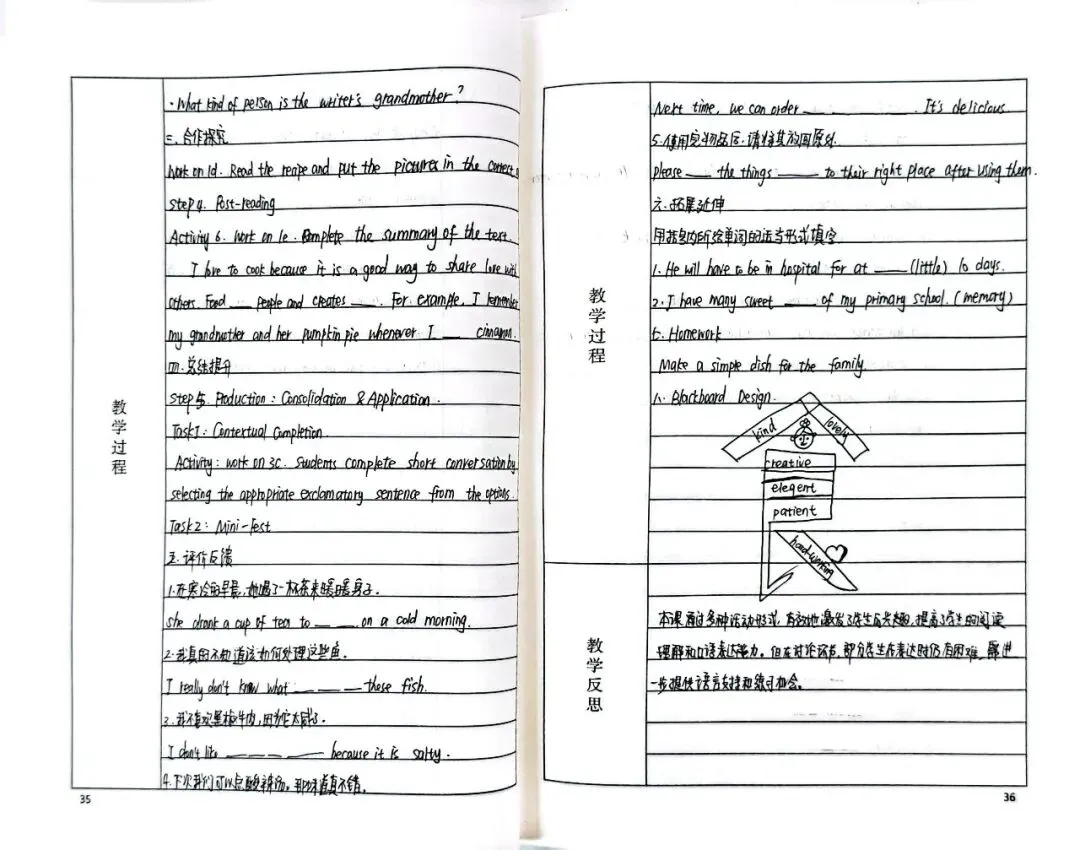 教学过程
· What kind of person is the writer's grandmother?
三. 合作探究
Work on 1d. Read the recipe and put the pictures in the correct
Step 4. Post-reading
Activity 6. Work on 1e. Complete the summary of the text.
I love to cook because it is a good way to share love with
others. Food ___ people and creates ___. For example, I remember
my grandmother and her pumpkin pie whenever I ___ cinnamon.
四. 总结提升
Step 5. Production: Consolidation & Application.
Task 1: Contextual Completion.
Activity: work on 3c. Students complete short conversation by
selecting the appropriate exclamatory sentence from the options.
Task 2: Mini-fest
五. 评价反馈
1. 在寒冷的早晨, 她喝了一杯茶来暖暖身子.
She drank a cup of tea to ___ ___ on a cold morning.
2. 我真的不知道该如何处理这些鱼.
I really don't know what ___ ___ ___ these fish.
3. 我不喜欢黑椒牛肉, 因为它太咸了.
I don't like ___ ___ ___ because it is salty.
4. 下次我们可以点酸辣汤, 那味道真不错.
35
教学过程
Next time, we can order ___ ___ ___. It's delicious.
5. 使用完物品后, 请将其放回原处.
Please ___ the things ___ to their right place after using them.
六. 拓展延伸
用括号内所给单词的适当形式填空
1. He will have to be in hospital for at ___ (little) 10 days.
2. I have many sweet ___ of my primary school. (memory)
七. Homework
Make a simple dish for the family.
八. Blackboard Design.
kind
lovely
creative
elegent
patient
hard-working
教学反思
本课通过多种活动形式, 有效地激发了学生的兴趣, 提高了学生的阅读
理解和口语表达能力. 但在讨论环节, 部分学生在表达时仍有困难, 需进
一步提供语言支持和练习机会.
36